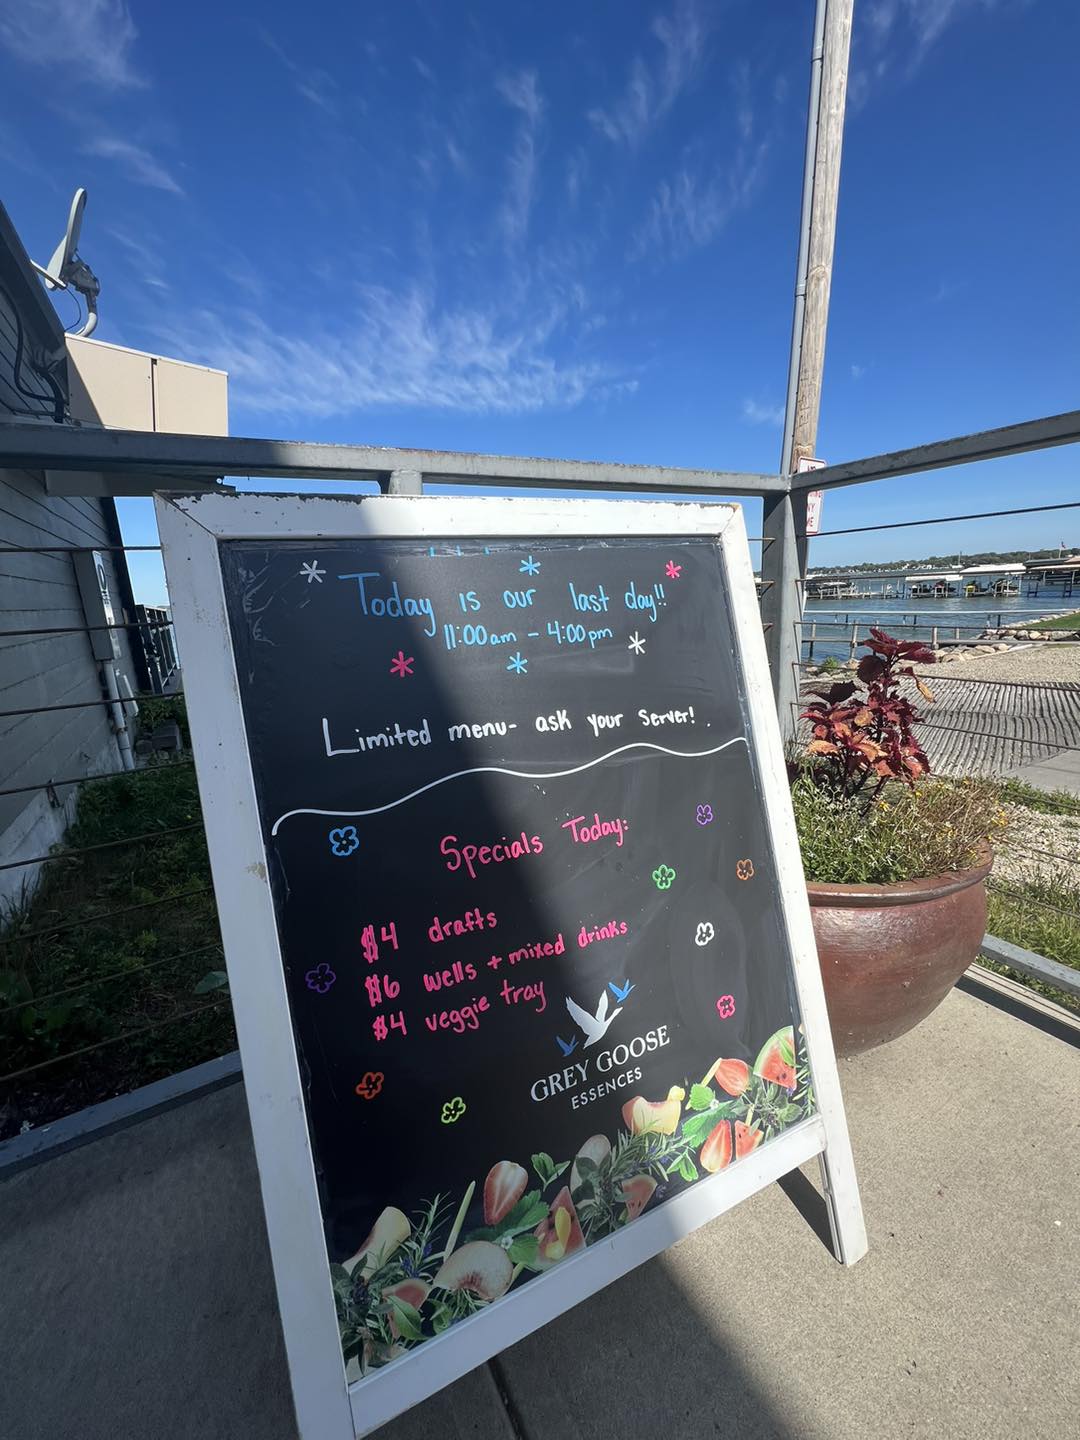 Today is our last day!!
11:00am - 4:00pm
Limited menu- ask your server!
Specials Today:
$4 drafts
$6 wells + mixed drinks
$4 veggie tray
GREY GOOSE
ESSENCES